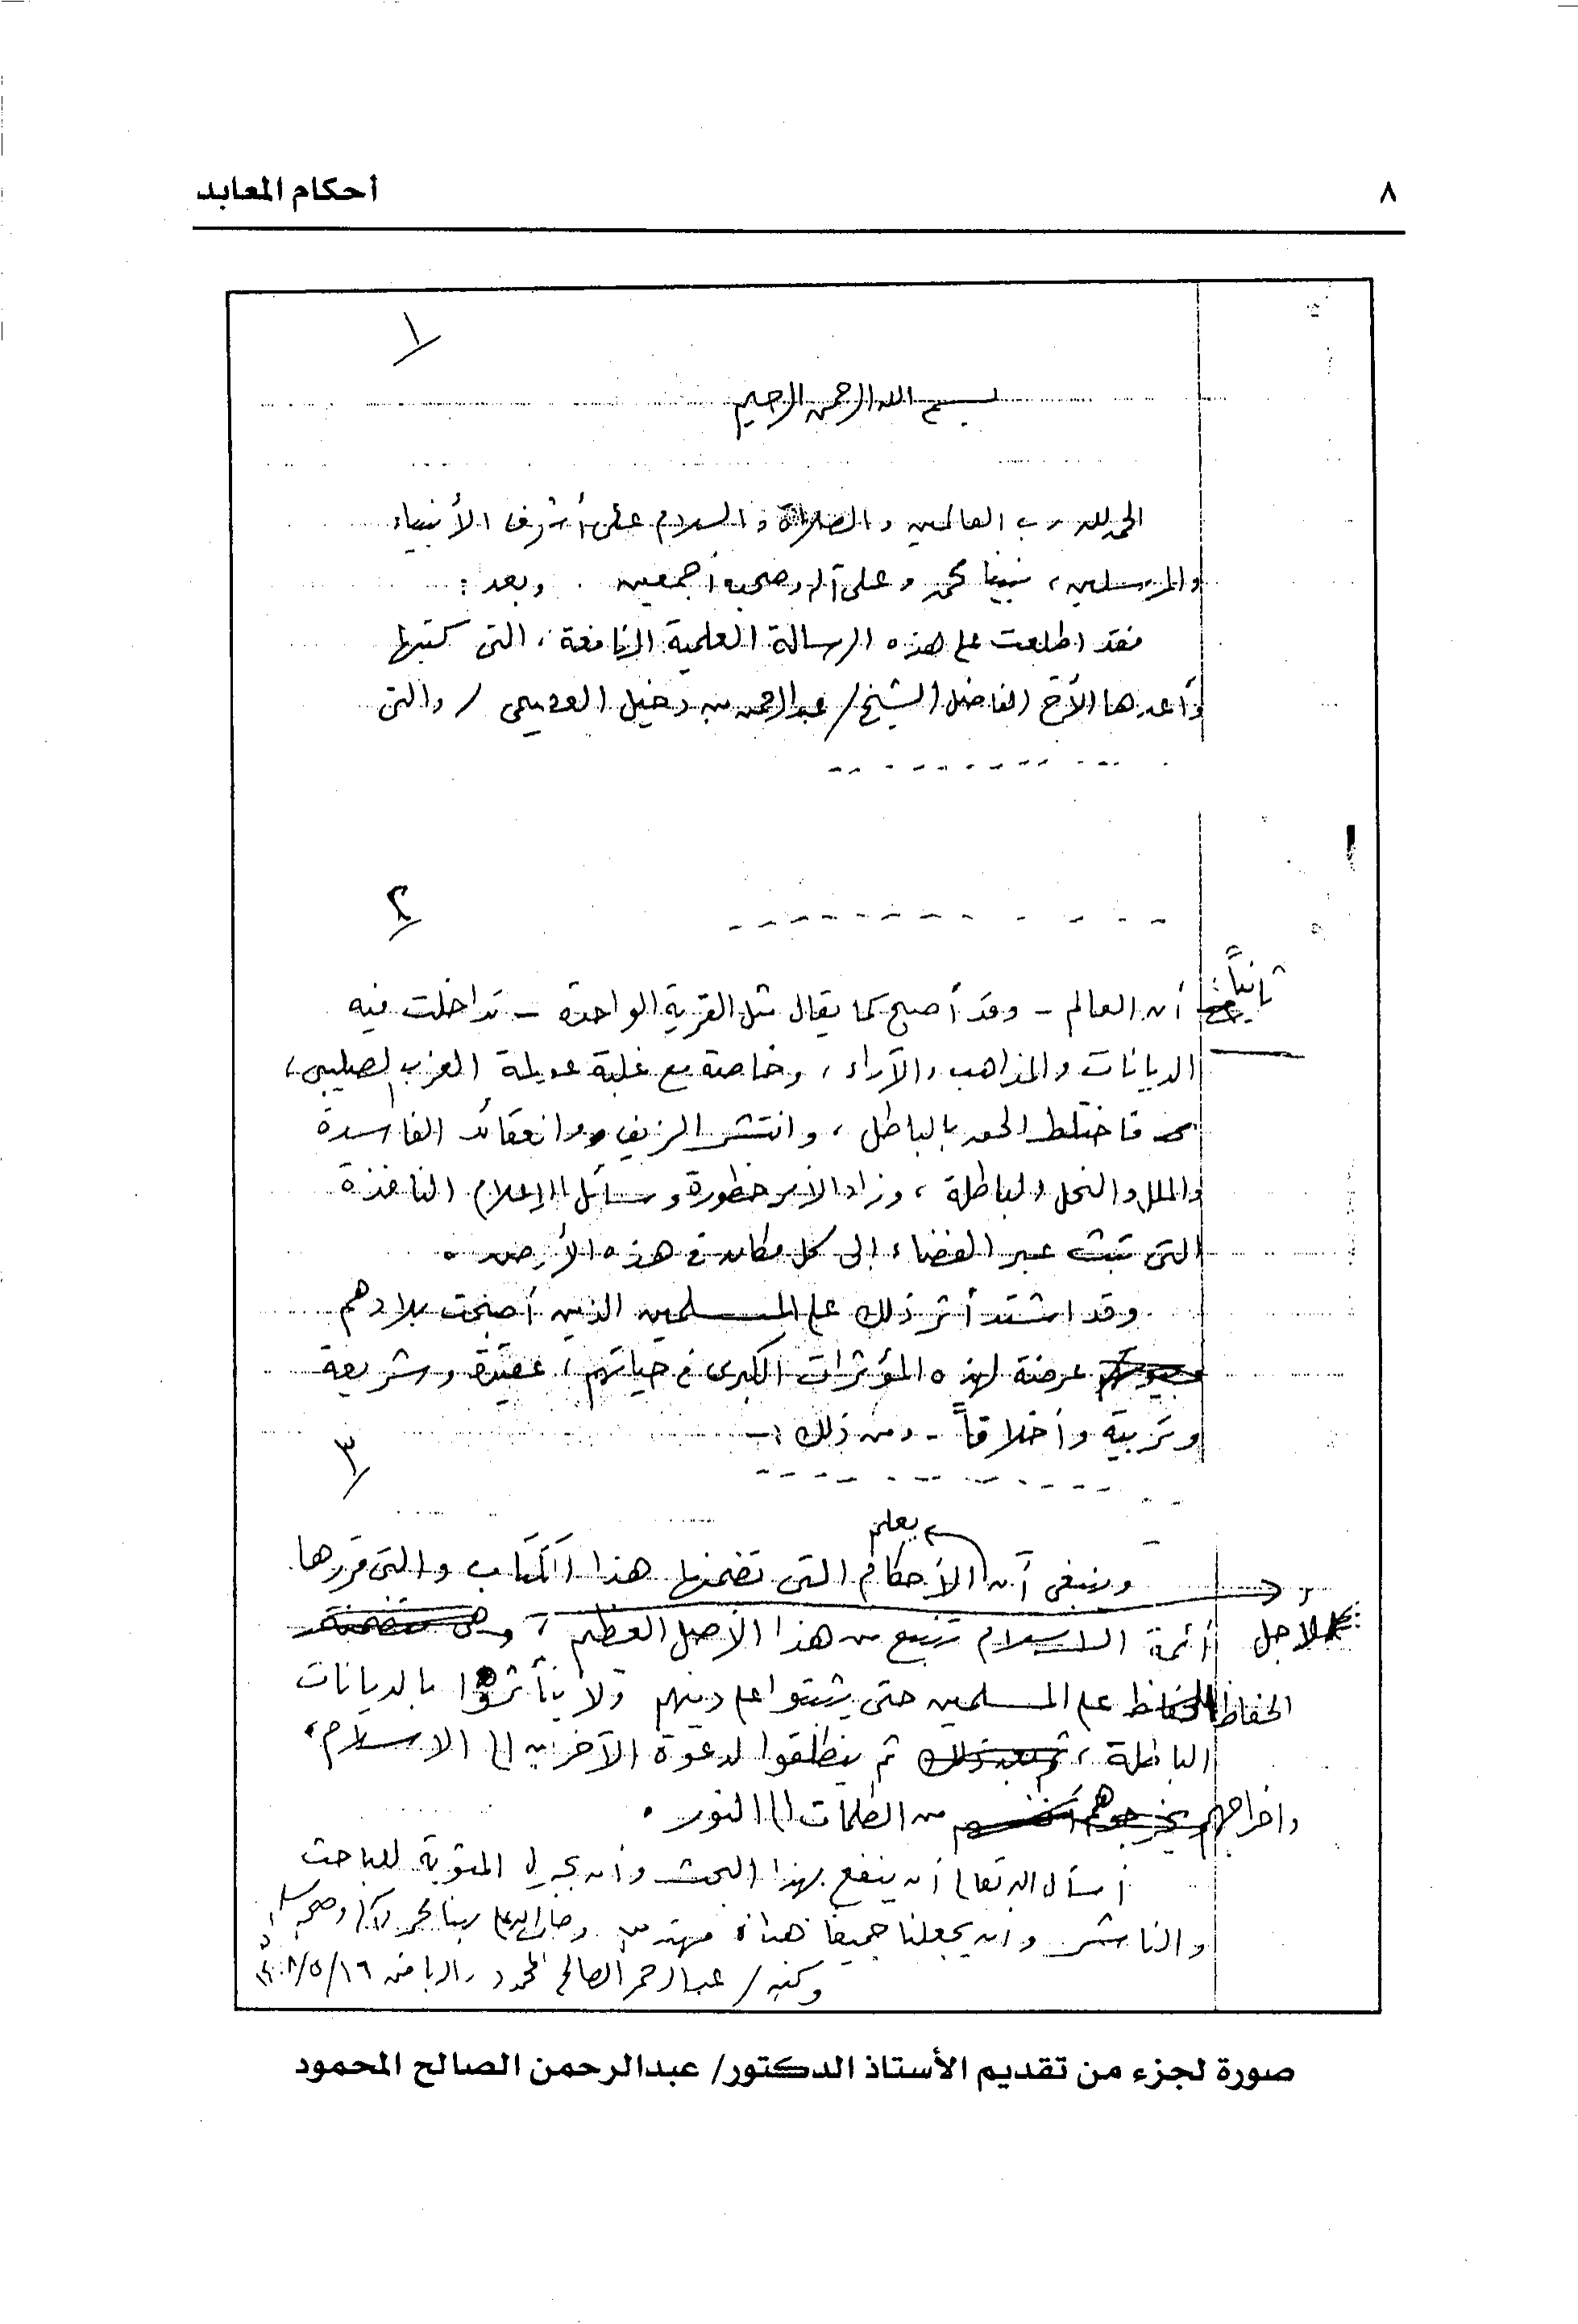 ٨
أحكام المعابد
١
بسم الله الرحمن الرحيم
الحمد لله رب العالمين والصلاة والسلام على أشرف الأنبياء
والمرسلين، نبينا محمد وعلى آله وصحبه أجمعين . وبعد :
فقد اطلعت على هذه الرسالة العلمية النافعة، التي كتبها
وأعدها الأخ الفاضل الشيخ/ عبدالرحمن بن دخيل العصيمي / والتي
٢
ثانياً: أن العالم - وقد أصبح كما يقال مثل القرية الواحدة - تداخلت فيه
الديانات والمذاهب والآراء، وخاصة مع غلبة عولمة الغرب الصليبي،
فاختلط الحق بالباطل، وانتشر الزيف والعقائد الفاسدة
والملل والنحل الباطلة، وزاد الأمر خطورة وسائل الإعلام النافذة
التي تبث عبر الفضاء إلى كل مكان في هذه الأرض.
وقد اشتد أثر ذلك على المسلمين الذين أصبحت بلادهم
عرضة لهذه المؤثرات الكبرى في حياتهم، عقيدة وشريعة
وتربية وأخلاقاً - ومن ذلك :-
٣
وينبغي أن يعلم أن الأحكام التي تضمنها هذا الكتاب والتي قررها
أئمة الإسلام تنبع من هذا الأصل العظيم، لأجل
الحفاظ على المسلمين حتى يثبتوا على دينهم ولا يتأثروا بالديانات
الباطلة، ثم ينطلقوا لدعوة الآخرين إلى الإسلام،
وإخراجهم من الظلمات إلى النور.
أسأل الله تعالى أن ينفع بهذا البحث وأن يجزل المثوبة للباحث
والناشر وأن يجعلنا جميعاً هداة مهتدين وصلى الله على نبينا محمد وآله وصحبه وسلم
وكتبه / عبدالرحمن الصالح المحمود، الرياض ١٦/٥/
صورة لجزء من تقديم الأستاذ الدكتور/ عبدالرحمن الصالح المحمود